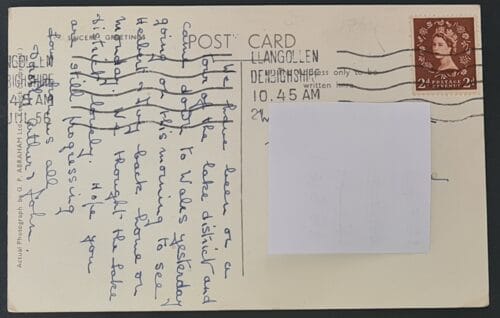 SINCERE GREETINGS
POST CARD
LLANGOLLEN
DENBIGHSHIRE
10.45 AM
Address only to be
written here.
2d POSTAGE REVENUE 2d
NGOLLEN
BIGHSHIRE
45 AM
JUL 56
Actual Photograph by G. P. ABRAHAM Ltd.
We have been on a
tour of the lake district and
came down to Wales yesterday
going on this morning to see
Herbert & Hoy back home on
monday. We thought the lake
district lovely. Hope you
are still progressing
love from us all
& John.